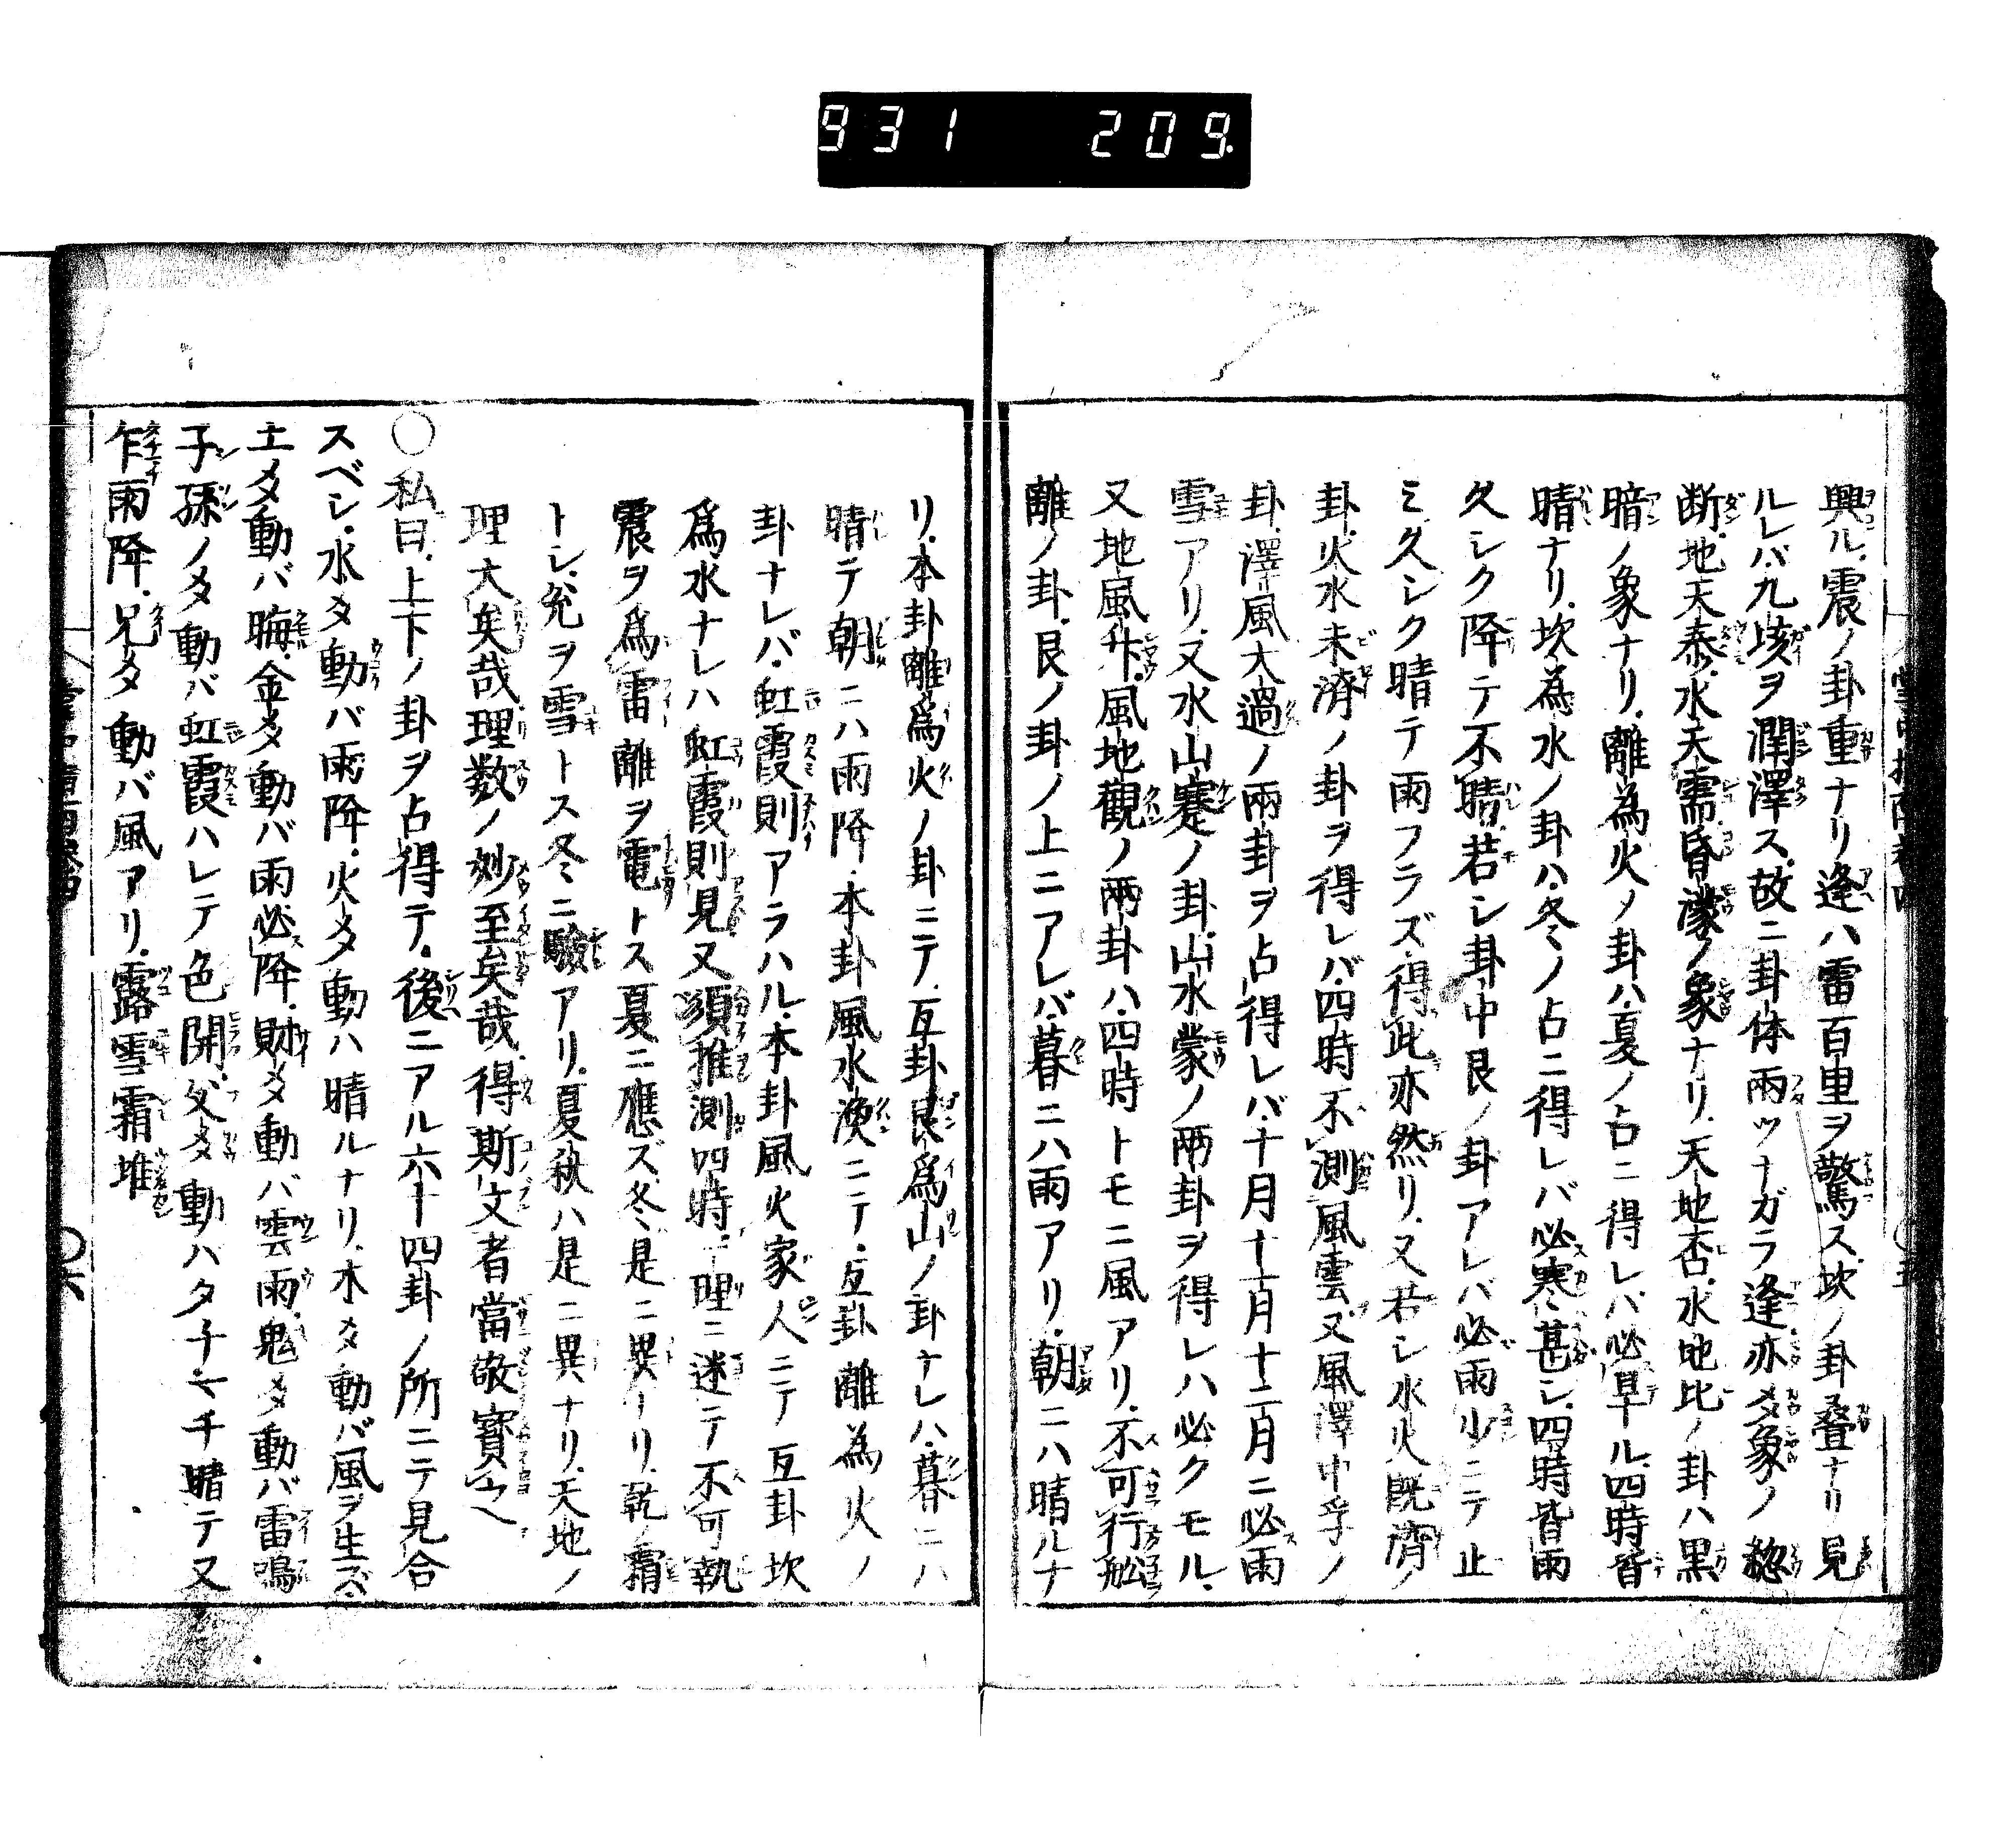 931 209
興ル.震ノ卦重ナリ逢ハ雷百里ヲ驚ス.坎ノ卦叠ナリ見
ルレバ.九垓ヲ潤澤ス.故ニ卦体兩ツナガラ逢亦メ象ノ
断.地天泰.水天需.昏濛ノ象ナリ.天地否.水地比ノ卦ハ黒
暗ノ象ナリ.離為火ノ卦ハ.夏ノ占ニ得レバ必旱ル.四時皆
晴ナリ.坎為水ノ卦ハ.冬ノ占ニ得レバ必寒甚シ.四時皆雨
久シク降テ不晴.若シ卦中艮ノ卦アレバ必雨少ニテ止
ミ.久シク晴テ雨フラズ.得此亦然リ.又若シ水火既濟ノ
卦.火水未濟ノ卦ヲ得レバ.四時不測風雲.又風澤中孚ノ
卦.澤風大過ノ兩卦ヲ占得レバ.十月十一月十二月ニ必雨
雪アリ.又水山蹇ノ卦.山水蒙ノ兩卦ヲ得レハ必クモル.
又地風升.風地觀ノ兩卦ハ.四時トモニ風アリ.不可行舩
離ノ卦.艮ノ卦ノ上ニアレバ.暮ニハ雨アリ.朝ニハ晴ルナ
リ.本卦離爲火ノ卦ニテ.互卦艮爲山ノ卦ナレハ.暮ニハ
晴テ朝ニハ雨降.本卦風水渙ニテ.互卦離為火ノ
卦ナレバ.虹霞則アラハル.本卦風火家人ニテ互卦坎
爲水ナレハ虹霞則見又須推測四時.理ニ迷テ不可執
震ヲ爲雷離ヲ電トス夏ニ應ズ.冬是ニ異ナリ.乾ヲ霜
トシ.兊ヲ雪トス冬ニ驗アリ.夏秋ハ是ニ異ナリ.天地ノ
理大矣哉.理数ノ妙至矣哉.得斯文者當敬寳之
〇私曰.上下ノ卦ヲ占得テ.後ニアル六十四卦ノ所ニテ見合
スベシ.水爻動バ雨降.火爻動ハ晴ルナリ.木爻動バ風ヲ生ズ.
土爻動バ晦.金爻動バ雨必降.財爻動バ雲雨.鬼爻動バ雷鳴
子孫ノ爻動バ虹霞ハレテ色開.父爻動ハタチマチ晴テ又
乍雨降.兄爻動バ風アリ.露雪霜堆
〇六